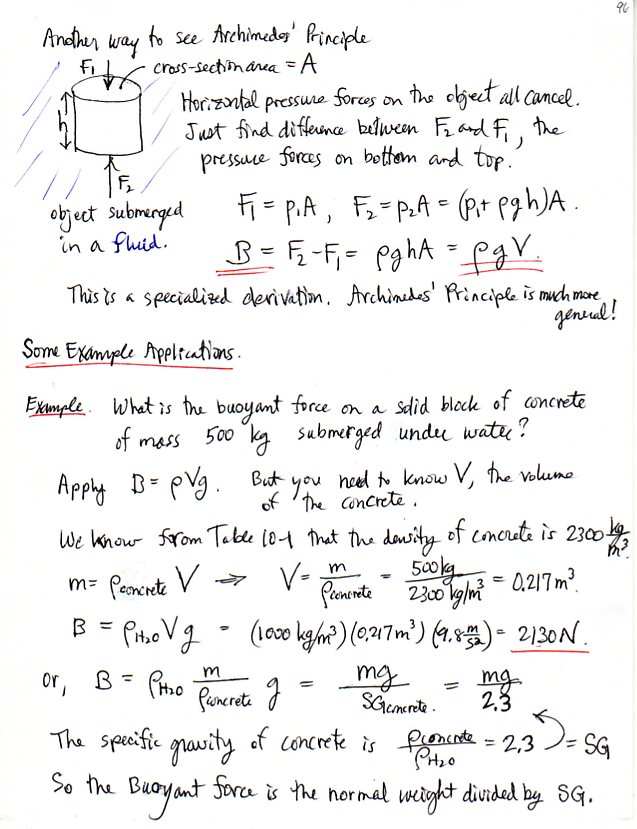 96
Another way to see Archimedes' Principle
F₁ cross-section area = A
h
Horizontal pressure forces on the object all cancel.
Just find difference between F₂ and F₁, the
pressure forces on bottom and top.
F₂
object submerged
in a fluid.
F₁ = p₁A, F₂ = p₂A = (p₁+ ρgh)A.
B = F₂-F₁ = ρghA = ρgV.
This is a specialized derivation. Archimedes' Principle is much more
general!
Some Example Applications.
Example. What is the buoyant force on a solid block of concrete
of mass 500 kg submerged under water?
Apply B = ρVg. But you need to know V, the volume
of the concrete.
We know from Table 10-1 that the density of concrete is 2300 kg/m³.
m = ρconcrete V ⇒ V = m/ρconcrete = 500kg/2300 kg/m³ = 0.217m³.
B = ρH₂O Vg = (1000 kg/m³)(0.217m³)(9.8 m/s²) = 2130N.
or, B = ρH₂O m/ρconcrete g = mg/SGconcrete. = mg/2.3
The specific gravity of concrete is ρconcrete/ρH₂O = 2.3 = SG
So the Buoyant force is the normal weight divided by SG.